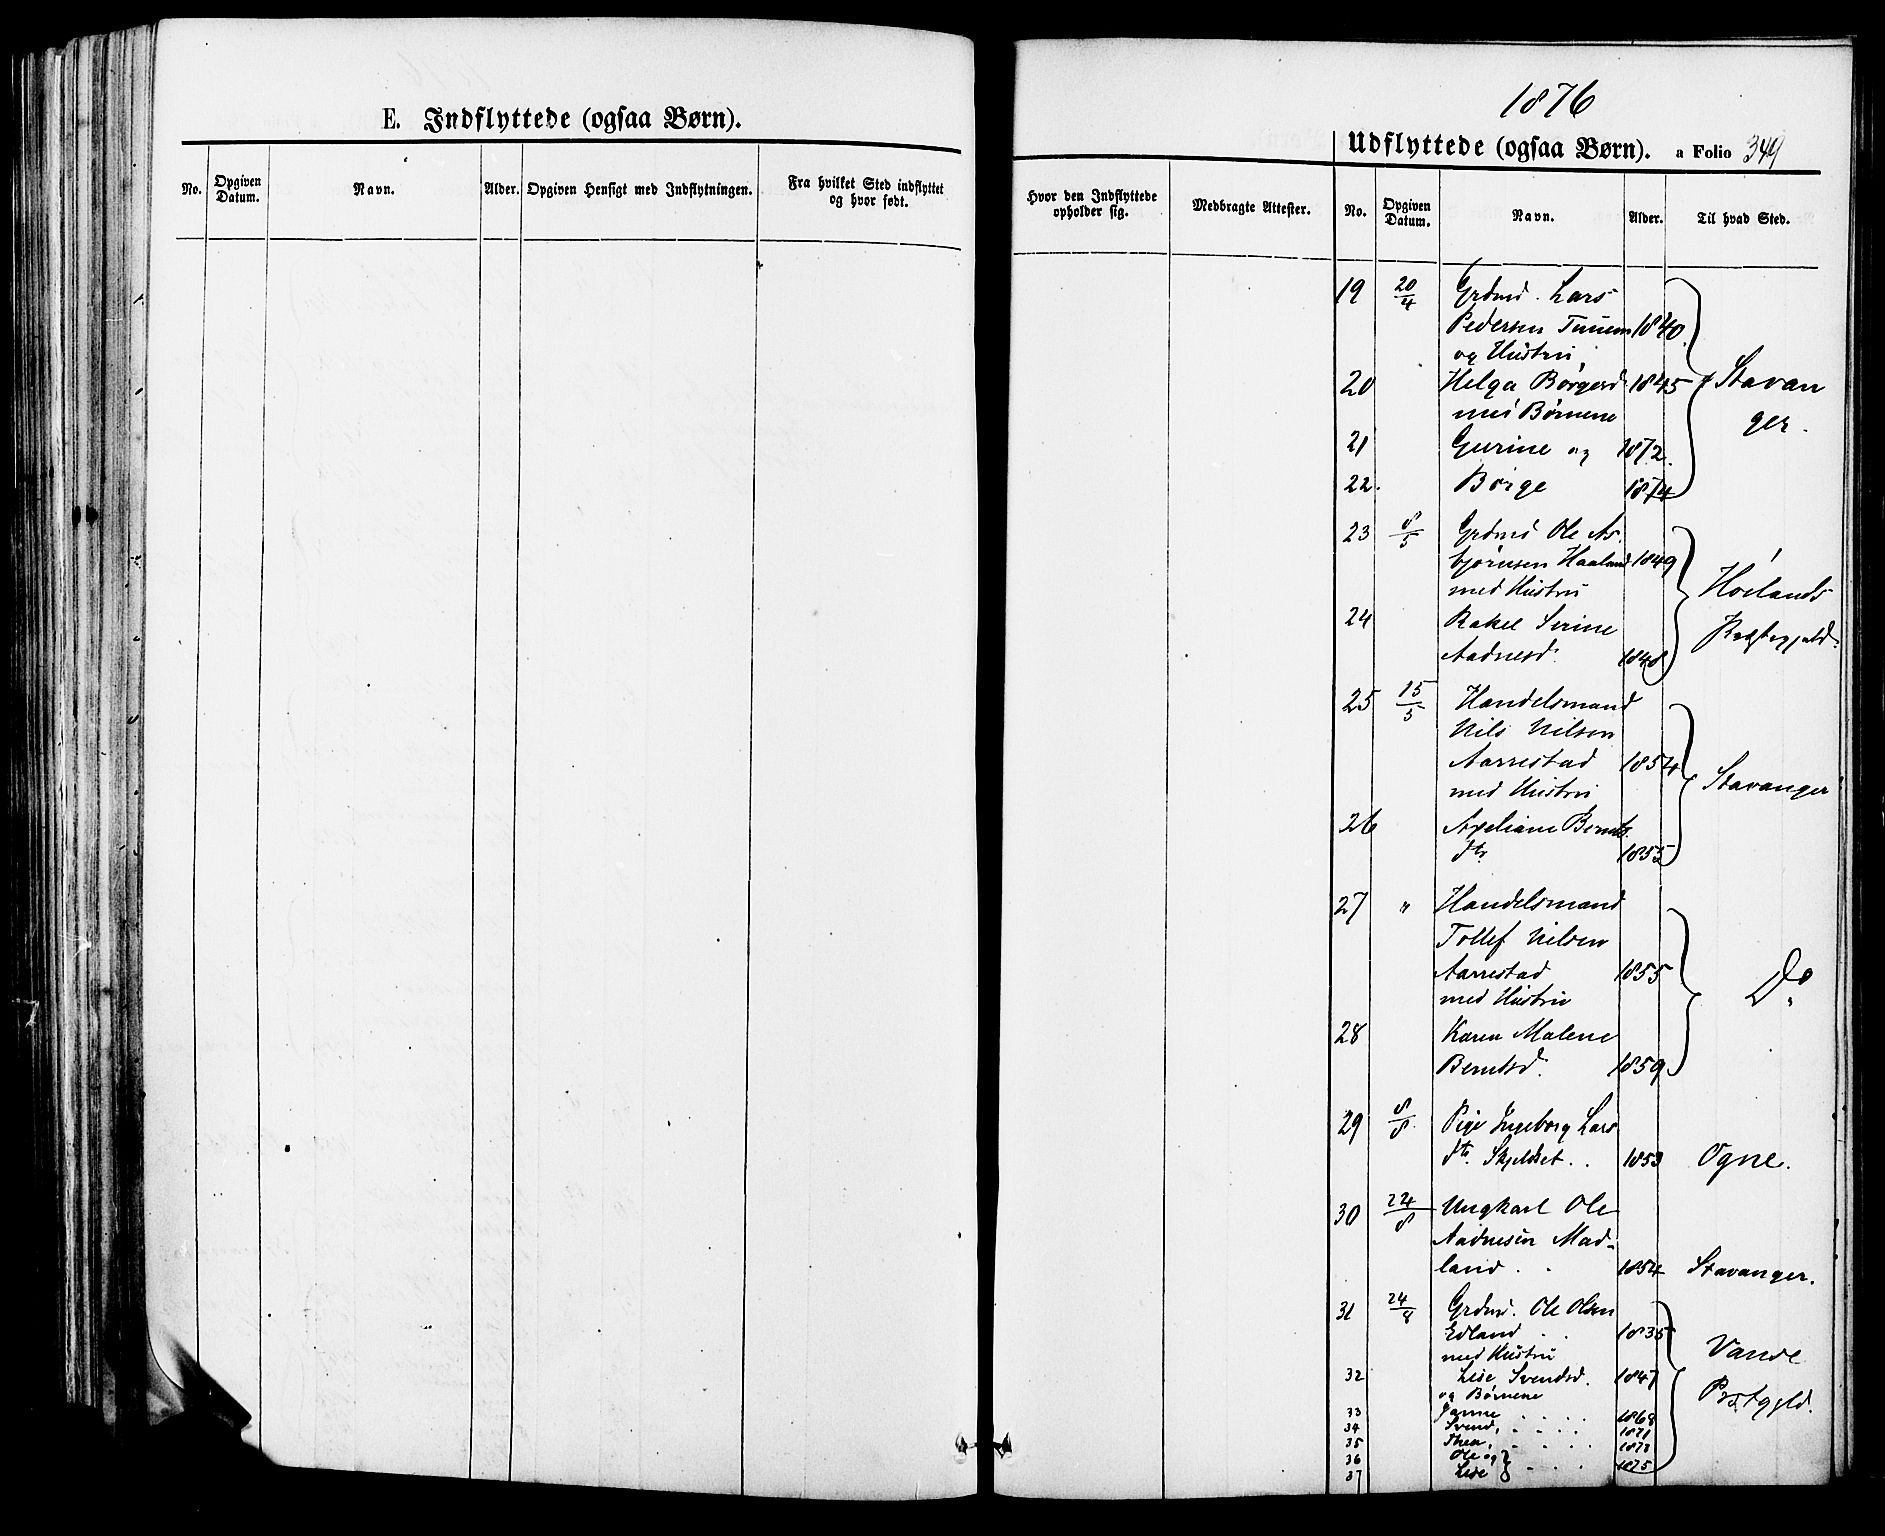 E. Indflyttede (ogsaa Børn).
No.
Opgiven Datum.
Navn.
Alder.
Opgiven Hensigt med Indflytningen.
Fra hvilket Sted indflyttet og hvor født.
1876
Udflyttede (ogsaa Børn). a Folio 349
Hvor den Indflyttede opholder sig.
Medbragte Attester.
No.
Opgiven Datum.
Navn.
Alder.
Til hvad Sted.
19 20/4 Grdmd. Lars
Pedersen Tunem 1840.
og Hustru,
20 Helga Børgesd 1845 Stavan
med Børnene ger.
21 Gurine og 1872.
22. Børge 1874
23 8/5 Grdmd Ole As-
bjørnsen Haaland 1849
med Hustru Hølands
24 Rakel Serine Præstegjeld.
Aadnesd. 1848
25 15/5 Handelsmand
Nils Nilsen
Aarrestad 1854
med Hustru Stavanger
26 Axeliane Bernts
dtr 1855
27 " Handelsmand
Tollef Nilsen
Aarrestad 1855
med Hustru Do
28 Karen Malene
Berntsd. 1859
29 8/8. Pige Ingeborg Lars
dtr. Skjelset . . 1853 Ogne.
30 24/8 Ungkarl Ole
Aadnesen Mad-
land . . 1854 Stavanger.
31 24/8 Grdmd. Ole Olsen
Edland . . 1835
med Hustru Vande
32 Lise Svendsd. 1847
og Børnene Præstgjld.
33 Janne . . . . 1868
34 Svend, . . . . 1871
35 Thea, . . . . 1873
36 Ole og
37 Lise . . . 1875